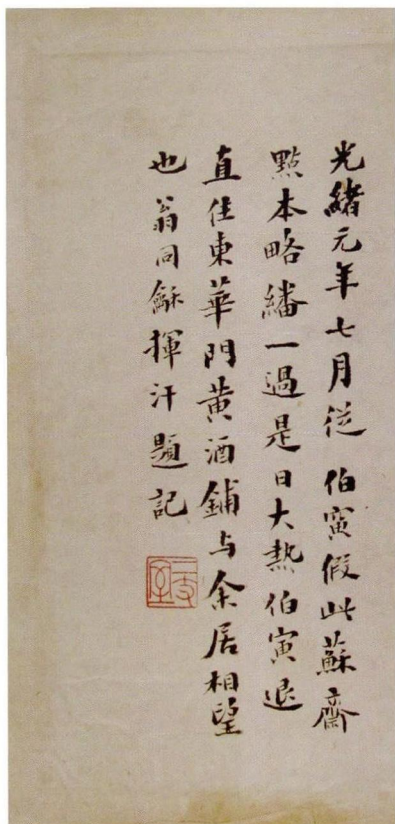 光緒元年七月從伯寅假此蘇齋
點本略繙一過是日大熱伯寅退
直住東華門黃酒鋪与余居相望
也翁同龢揮汗題記